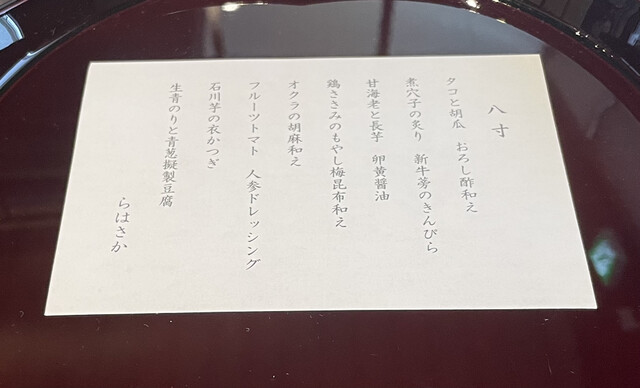 八寸
タコと胡瓜　おろし酢和え
煮穴子の炙り　新牛蒡のきんぴら
甘海老と長芋　卵黄醤油
鶏ささみのもやし梅昆布和え
オクラの胡麻和え
フルーツトマト　人参ドレッシング
石川芋の衣かつぎ
生青のりと青葱擬製豆腐
らはさか